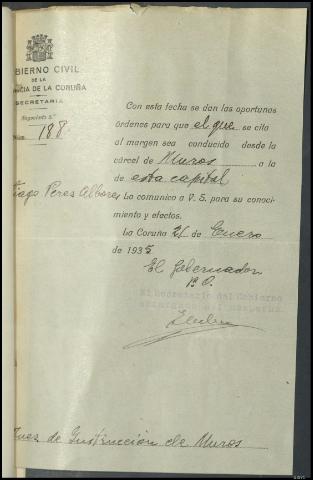 BIERNO CIVIL
DE LA
CIA DE LA CORUÑA
SECRETARIA
Negociado
Núm. 188
Con esta fecha se dan las oportunas
órdenes para que el que se cita
al margen sea conducido desde la
cárcel de Muros a la
de esta capital
tiago Peres Albores
Lo comunico a V. S. para su conoci-
miento y efectos.
La Coruña 21 de Enero
de 1935
El Gobernador
P. O.
El Secretario del Gobierno
Juez de Instrucción de Muros